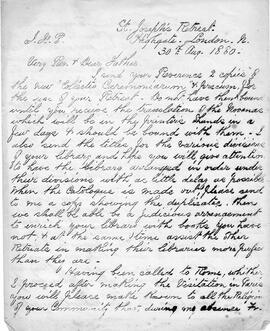 St. Joseph's Retreat
J. X. P. Highgate - London. N.
30th Aug. 1880.
Very Rev & Dear Father
I send your Reverence 2 copies of
the new Collectio Ceremoniarum & precum, for
the use of your Retreat. Do not have them bound
until you receive the translation of the Novenas
which will be in the printer's hands in a
few days & should be bound with them. I
also send the letters for the various divisions
of your library and I hope you will give attention
to have the library arranged in order under
these divisions with as little delay as possible
When the Catalogue is made out please send
to me a copy showing the duplicates. Then
we shall be able by a judicious arrangement
to enrich your library with books you have
not & at the same time assist the other
Retreats in making their libraries more perfect
than they are.
Having been called to Rome, whither
I proceed after making the Visitation in Paris
you will please make known to all the Religious
of your Community that, during my absence Fr.